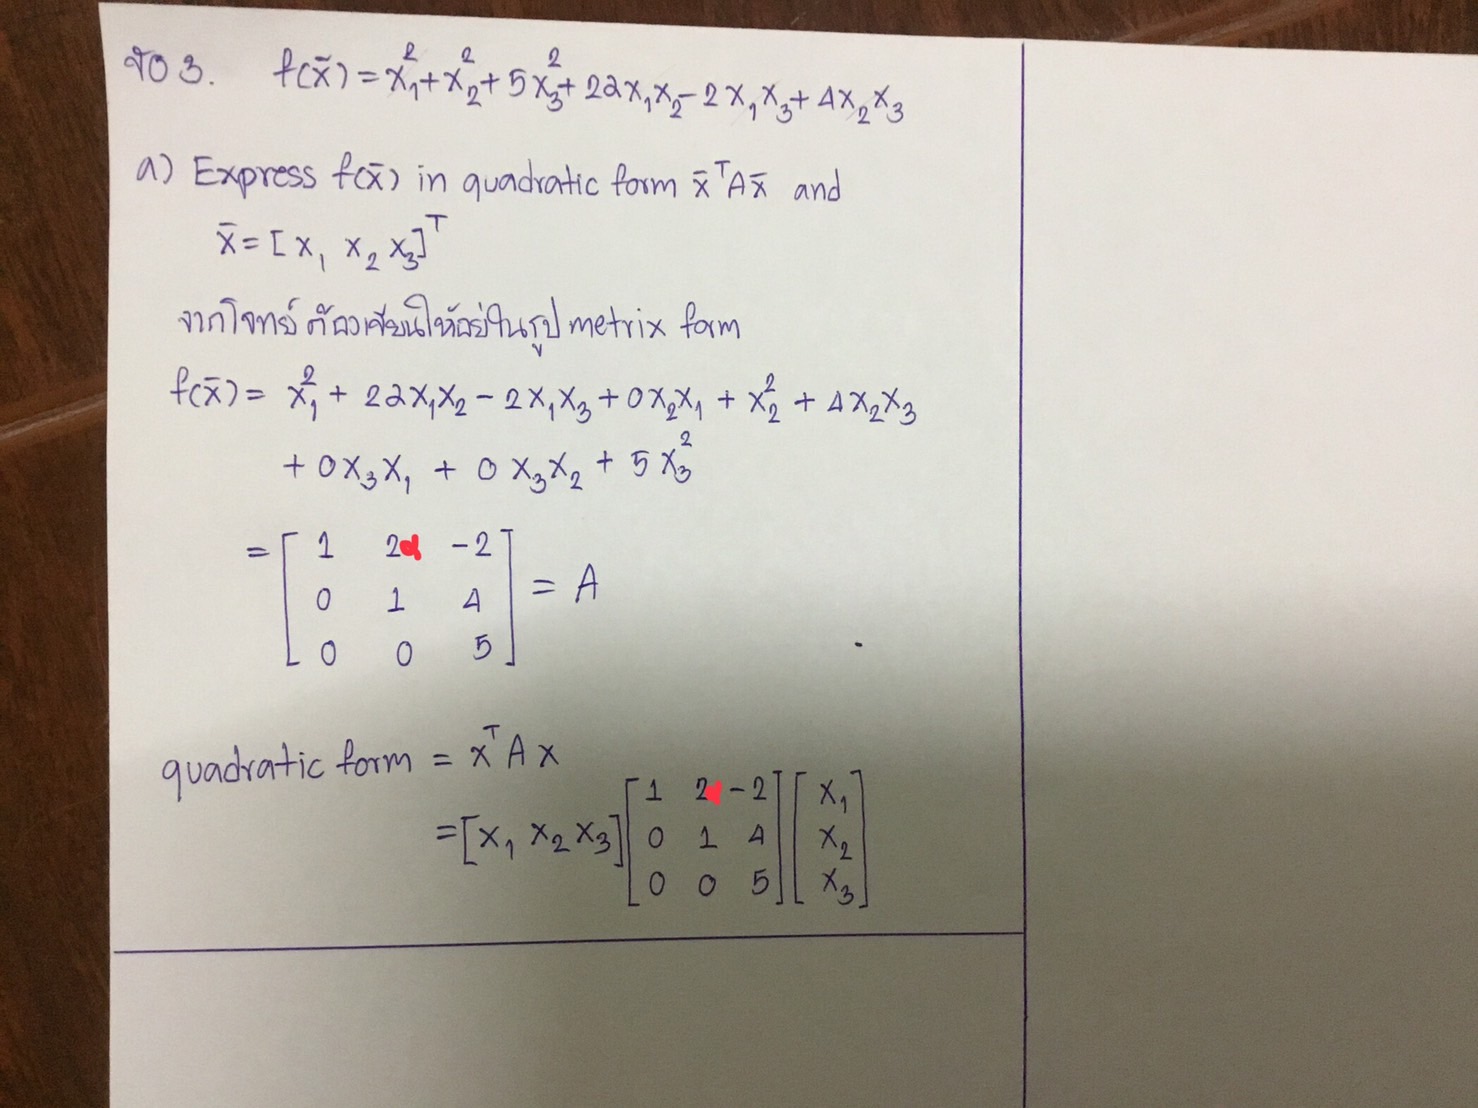 ข้อ 3. f(x̄) = x₁² + x₂² + 5x₃² + 2αx₁x₂ - 2x₁x₃ + 4x₂x₃
a) Express f(x̄) in quadratic form x̄ᵀAx̄ and
x̄ = [x₁ x₂ x₃]ᵀ
จากโจทย์ ต้องเขียนให้อยู่ในรูป metrix form
f(x̄) = x₁² + 2αx₁x₂ - 2x₁x₃ + 0x₂x₁ + x₂² + 4x₂x₃
+ 0x₃x₁ + 0x₃x₂ + 5x₃²
= [ 1 2α -2
0 1 4
0 0 5 ] = A
quadratic form = xᵀAx
= [x₁ x₂ x₃] [ 1 2α -2 ] [ x₁ ]
[ 0 1 4 ] [ x₂ ]
[ 0 0 5 ] [ x₃ ]